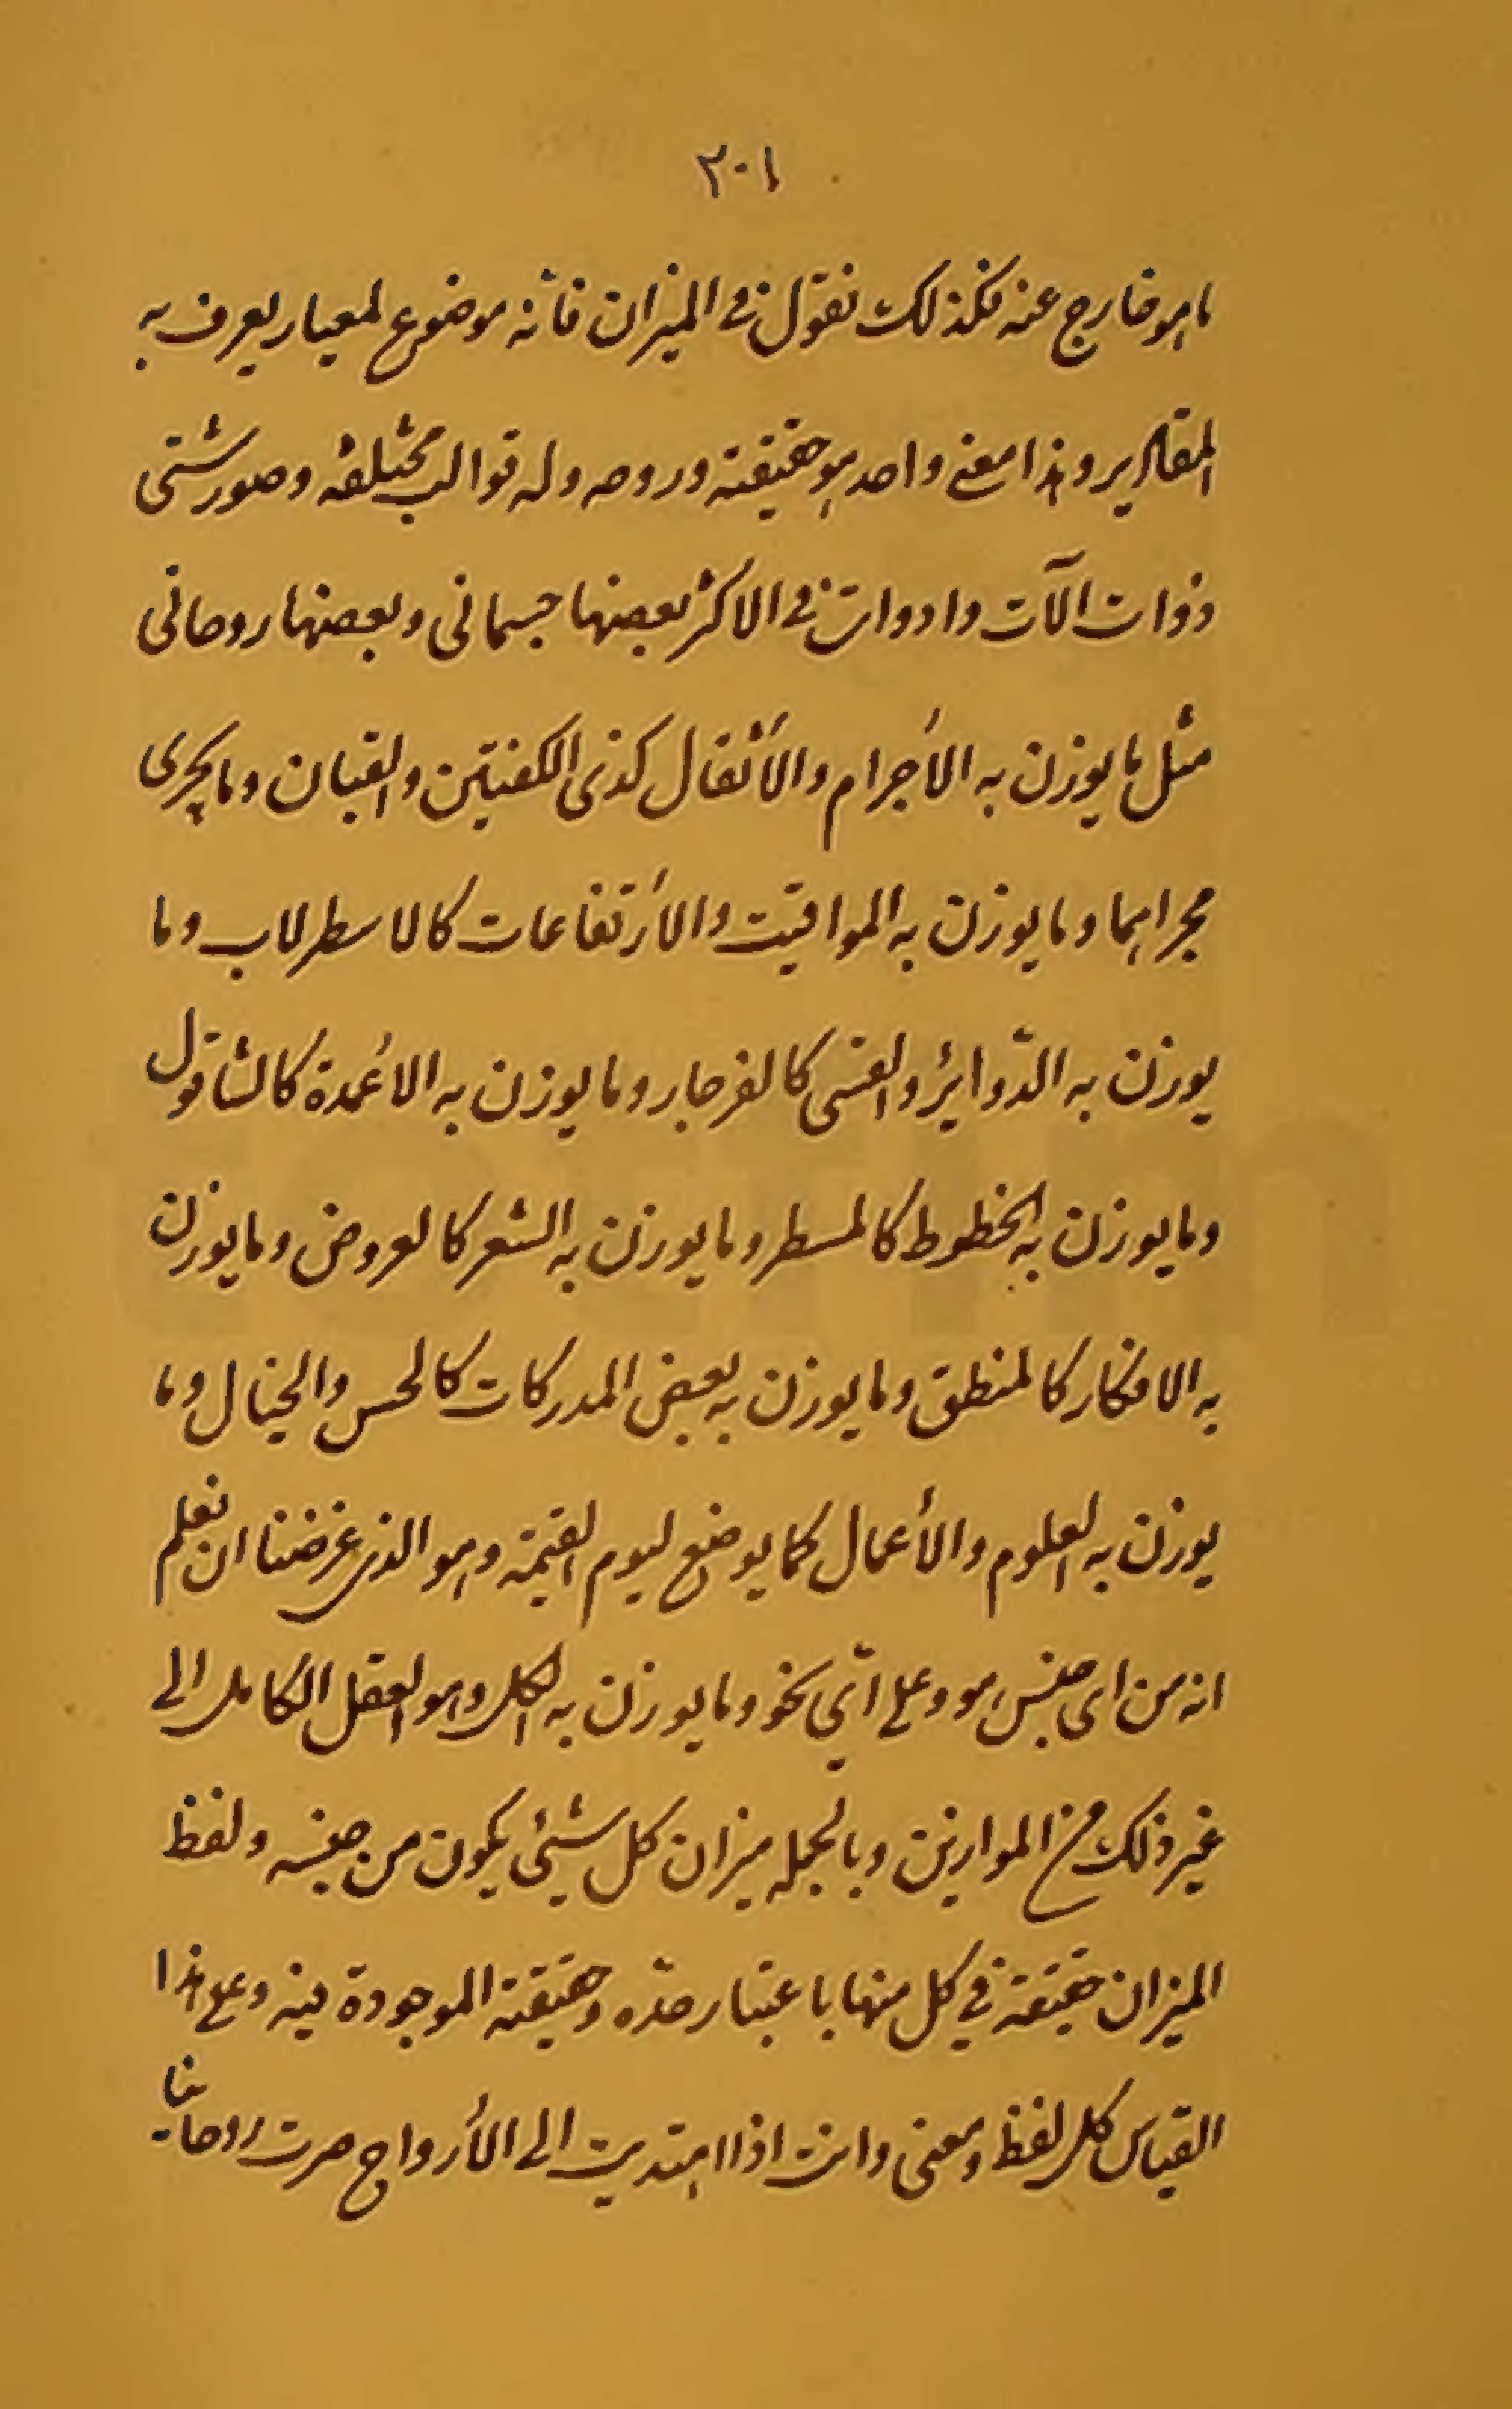 ٢٠١
ما هو خارج عنه فكذلك نقول في الميزان فانه موضوع لمعيار يعرف به
المقادير وهذا معنى واحد هو حقيقته وروحه وله قوالب مختلفه وصور شتى
ذوات الآت وادوات في الاكثر بعضها جسمانى وبعضها روحانى
مثل ما يوزن به الأجرام والأثقال كذى الكفتين والقبان وما يجرى
مجراهما وما يوزن به المواقيت والأرتفاعات كالاسطرلاب وما
يوزن به الدّوائر والقسى كالفرجار وما يوزن به الاعُمدة كالشاقول
وما يوزن به الخطوط كالمسطر وما يوزن به الشعر كالعروض وما يوزن
به الافكار كالمنطق وما يوزن به بعض المدركات كالحس والخيال وما
يوزن به العلوم والأعمال كما يوضع ليوم القيمة وهو الذى غرضنا ان نعلم
انه من اى جنس هو وعلى اىّ نحو وما يوزن به الكل وهو العقل الكامل الى
غير ذلك من الموازين وبالجمله ميزان كل شيئى يكون من جنسه ولفظ
الميزان حقيقة في كل منها باعتبار حدّه وحقيقته الموجودة فيه وعلى هذا
القياس كل لفظ ومعنى وانت اذا اهتديت الى الأرواح صرت روحانيا